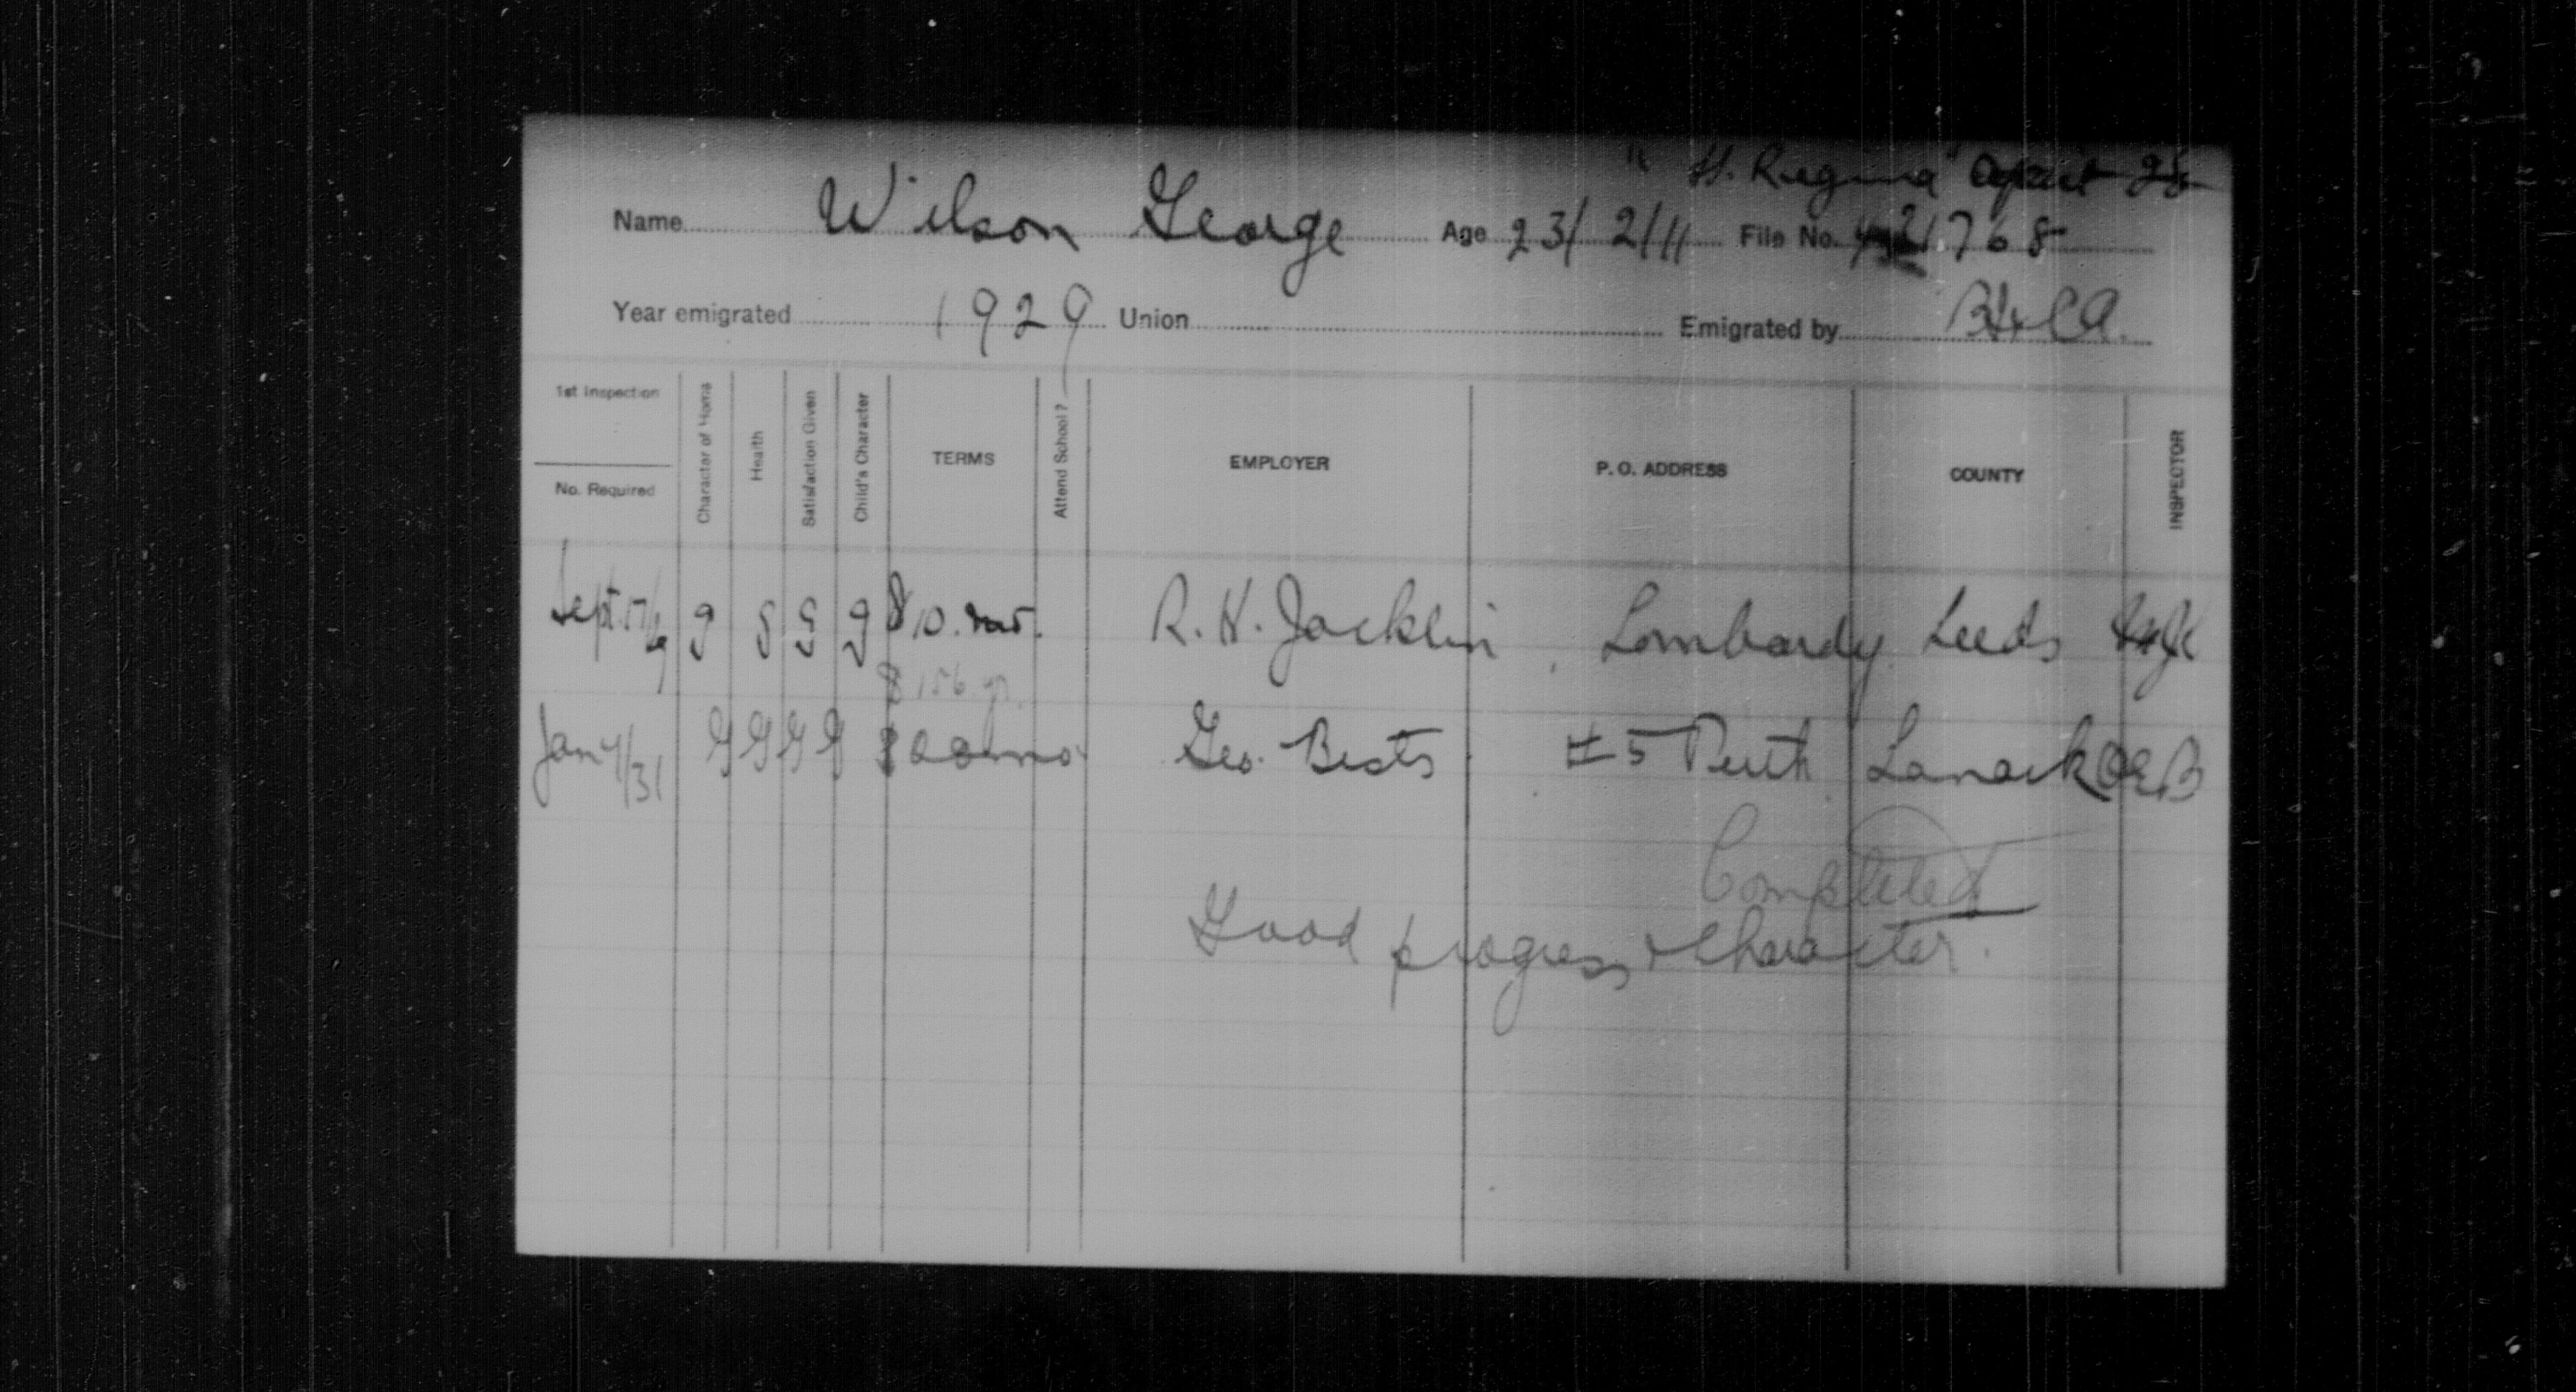 " Regina" April 28
Name Wilson George Age 23/2/11 File No. 768
Year emigrated 1929 Union Emigrated by
1st Inspection
No. Required
Character of Home
Health
Satisfaction Given
Child's Character
TERMS
Attend School?
EMPLOYER
P. O. ADDRESS
COUNTY
INSPECTOR
Sept. 17/ g g g g $10. R. H. Jacklin, Lombardy Leeds
$156 yr.
Jan 4/31 G G G G Geo. Bests #5 Perth Lanark OEB
Completed
Good progress & character.